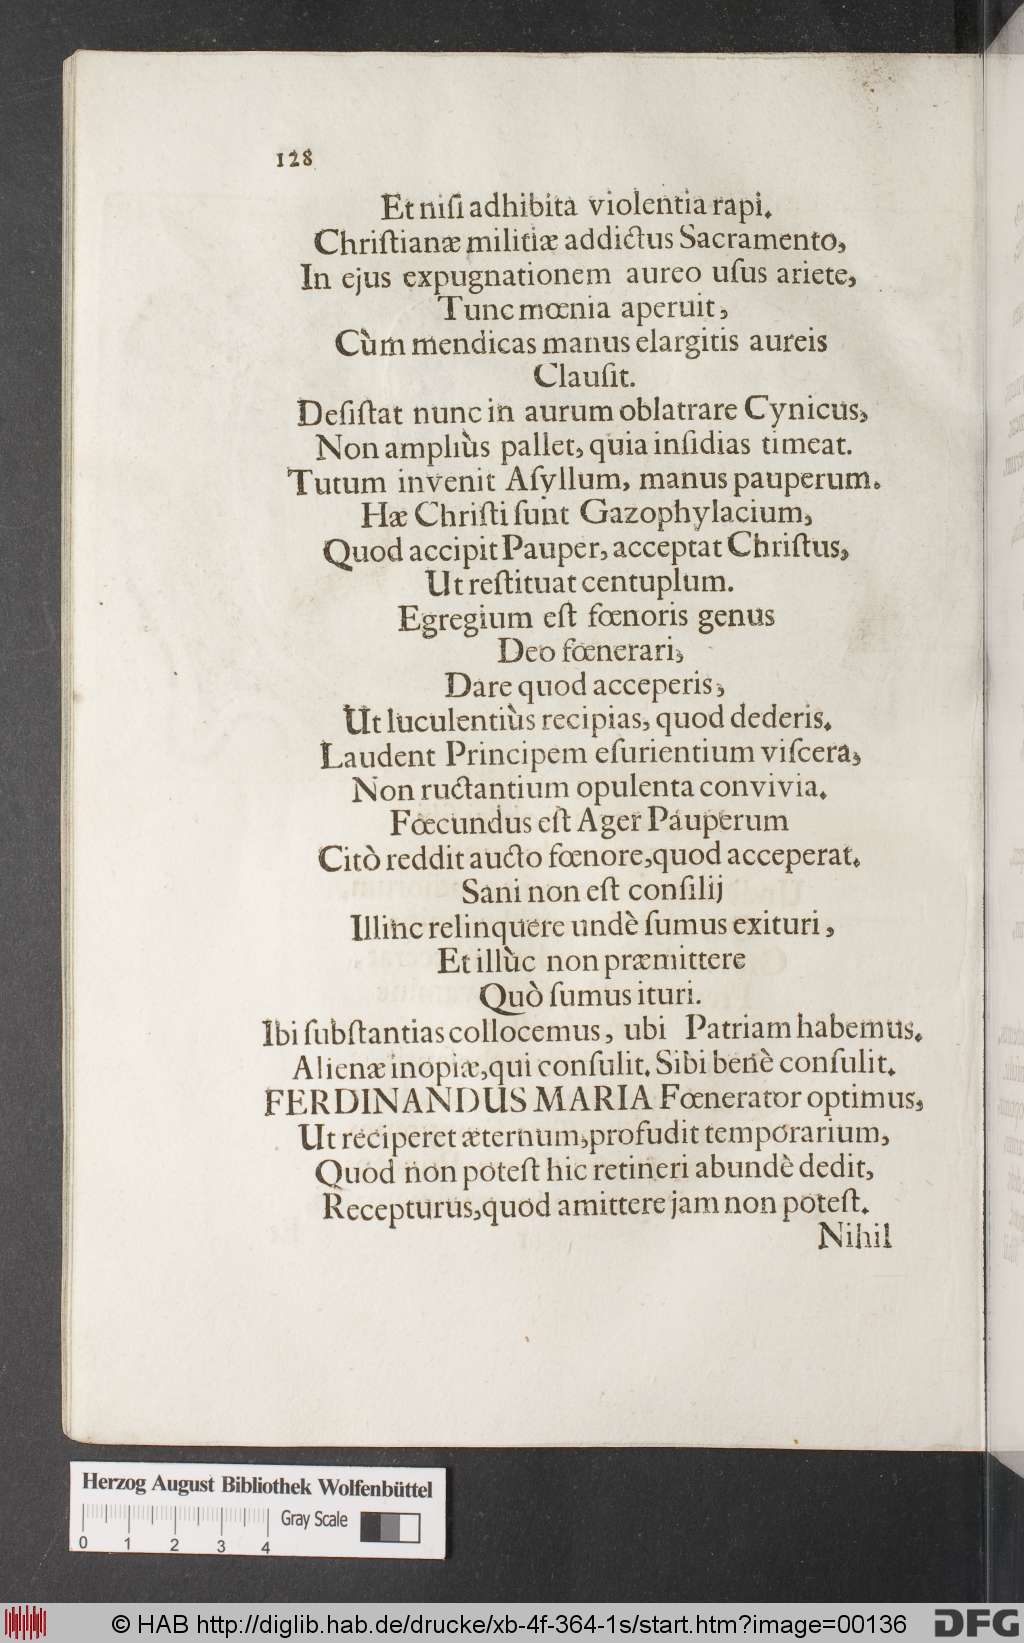 128
Et niſi adhibita violentia rapi.
Chriſtianæ militiæ addictus Sacramento,
In ejus expugnationem aureo uſus ariete,
Tunc mœnia aperuit,
Cùm mendicas manus elargitis aureis
Clauſit.
Deſiſtat nunc in aurum oblatrare Cynicus,
Non ampliùs pallet, quia inſidias timeat.
Tutum invenit Aſyllum, manus pauperum.
Hæ Chriſti ſunt Gazophylacium,
Quod accipit Pauper, acceptat Chriſtus,
Ut reſtituat centuplum.
Egregium eſt fœnoris genus
Deo fœnerari,
Dare quod acceperis,
Ut luculentiùs recipias, quod dederis.
Laudent Principem eſurientium viſcera,
Non ructantium opulenta convivia.
Fœcundus eſt Ager Pauperum
Citò reddit aucto fœnore, quod acceperat.
Sani non eſt conſilij
Illinc relinquere undè ſumus exituri,
Et illùc non præmittere
Quò ſumus ituri.
Ibi ſubſtantias collocemus, ubi Patriam habemus.
Alienæ inopiæ, qui conſulit. Sibi benè conſulit.
FERDINANDUS MARIA Fœnerator optimus,
Ut reciperet æternum, profudit temporarium,
Quod non poteſt hic retineri abundè dedit,
Recepturus, quod amittere jam non poteſt.
Nihil
Herzog August Bibliothek Wolfenbüttel
Gray Scale
0 1 2 3 4
© HAB http://diglib.hab.de/drucke/xb-4f-364-1s/start.htm?image=00136
DFG